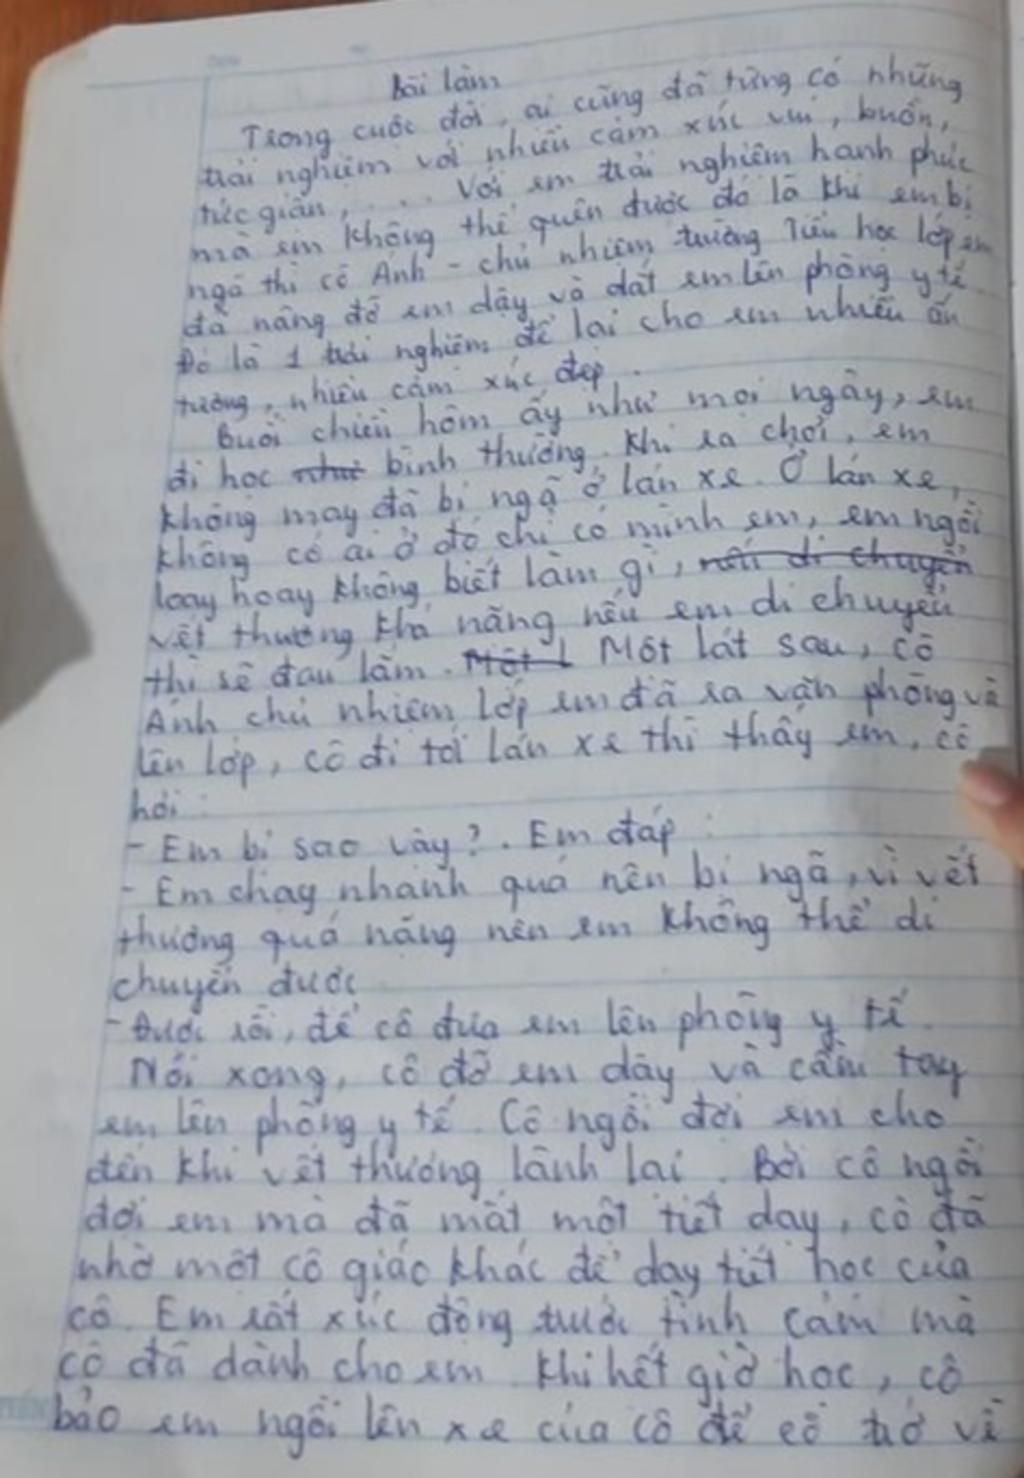 Bài làm
Trong cuộc đời, ai cũng đã từng có những
trải nghiệm với nhiều cảm xúc vui, buồn,
tức giận, . . . Với em trải nghiệm hạnh phúc
mà em không thể quên được đó là khi em bị
ngã thì cô Ánh - chủ nhiệm trường Tiểu học lớp em
đã nâng đỡ em dậy và dắt em lên phòng y tế
Đó là 1 trải nghiệm để lại cho em nhiều ấn
tượng, nhiều cảm xúc đẹp.
Buổi chiều hôm ấy như mọi ngày, em
đi học như bình thường. Khi ra chơi, em
không may đã bị ngã ở lán xe. Ở lán xe,
không có ai ở đó chỉ có mình em, em ngồi
loay hoay không biết làm gì, nếu di chuyển
vết thương khá nặng nếu em di chuyển
thì sẽ đau lắm. Một l Một lát sau, cô
Ánh chủ nhiệm lớp em đã ra văn phòng và
lên lớp, cô đi tới lán xe thì thấy em, cô
hỏi:
- Em bị sao vậy?. Em đáp:
- Em chạy nhanh quá nên bị ngã, vì vết
thương quá nặng nên em không thể di
chuyển được
- Được rồi, để cô đưa em lên phòng y tế.
Nói xong, cô đỡ em dậy và cầm tay
em lên phòng y tế. Cô ngồi đợi em cho
đến khi vết thương lành lại. Bởi cô ngồi
đợi em mà đã mất một tiết dạy, cô đã
nhờ một cô giáo khác để dạy tiết học của
cô. Em rất xúc động trước tình cảm mà
cô đã dành cho em. Khi hết giờ học, cô
bảo em ngồi lên xe của cô để cô trở về